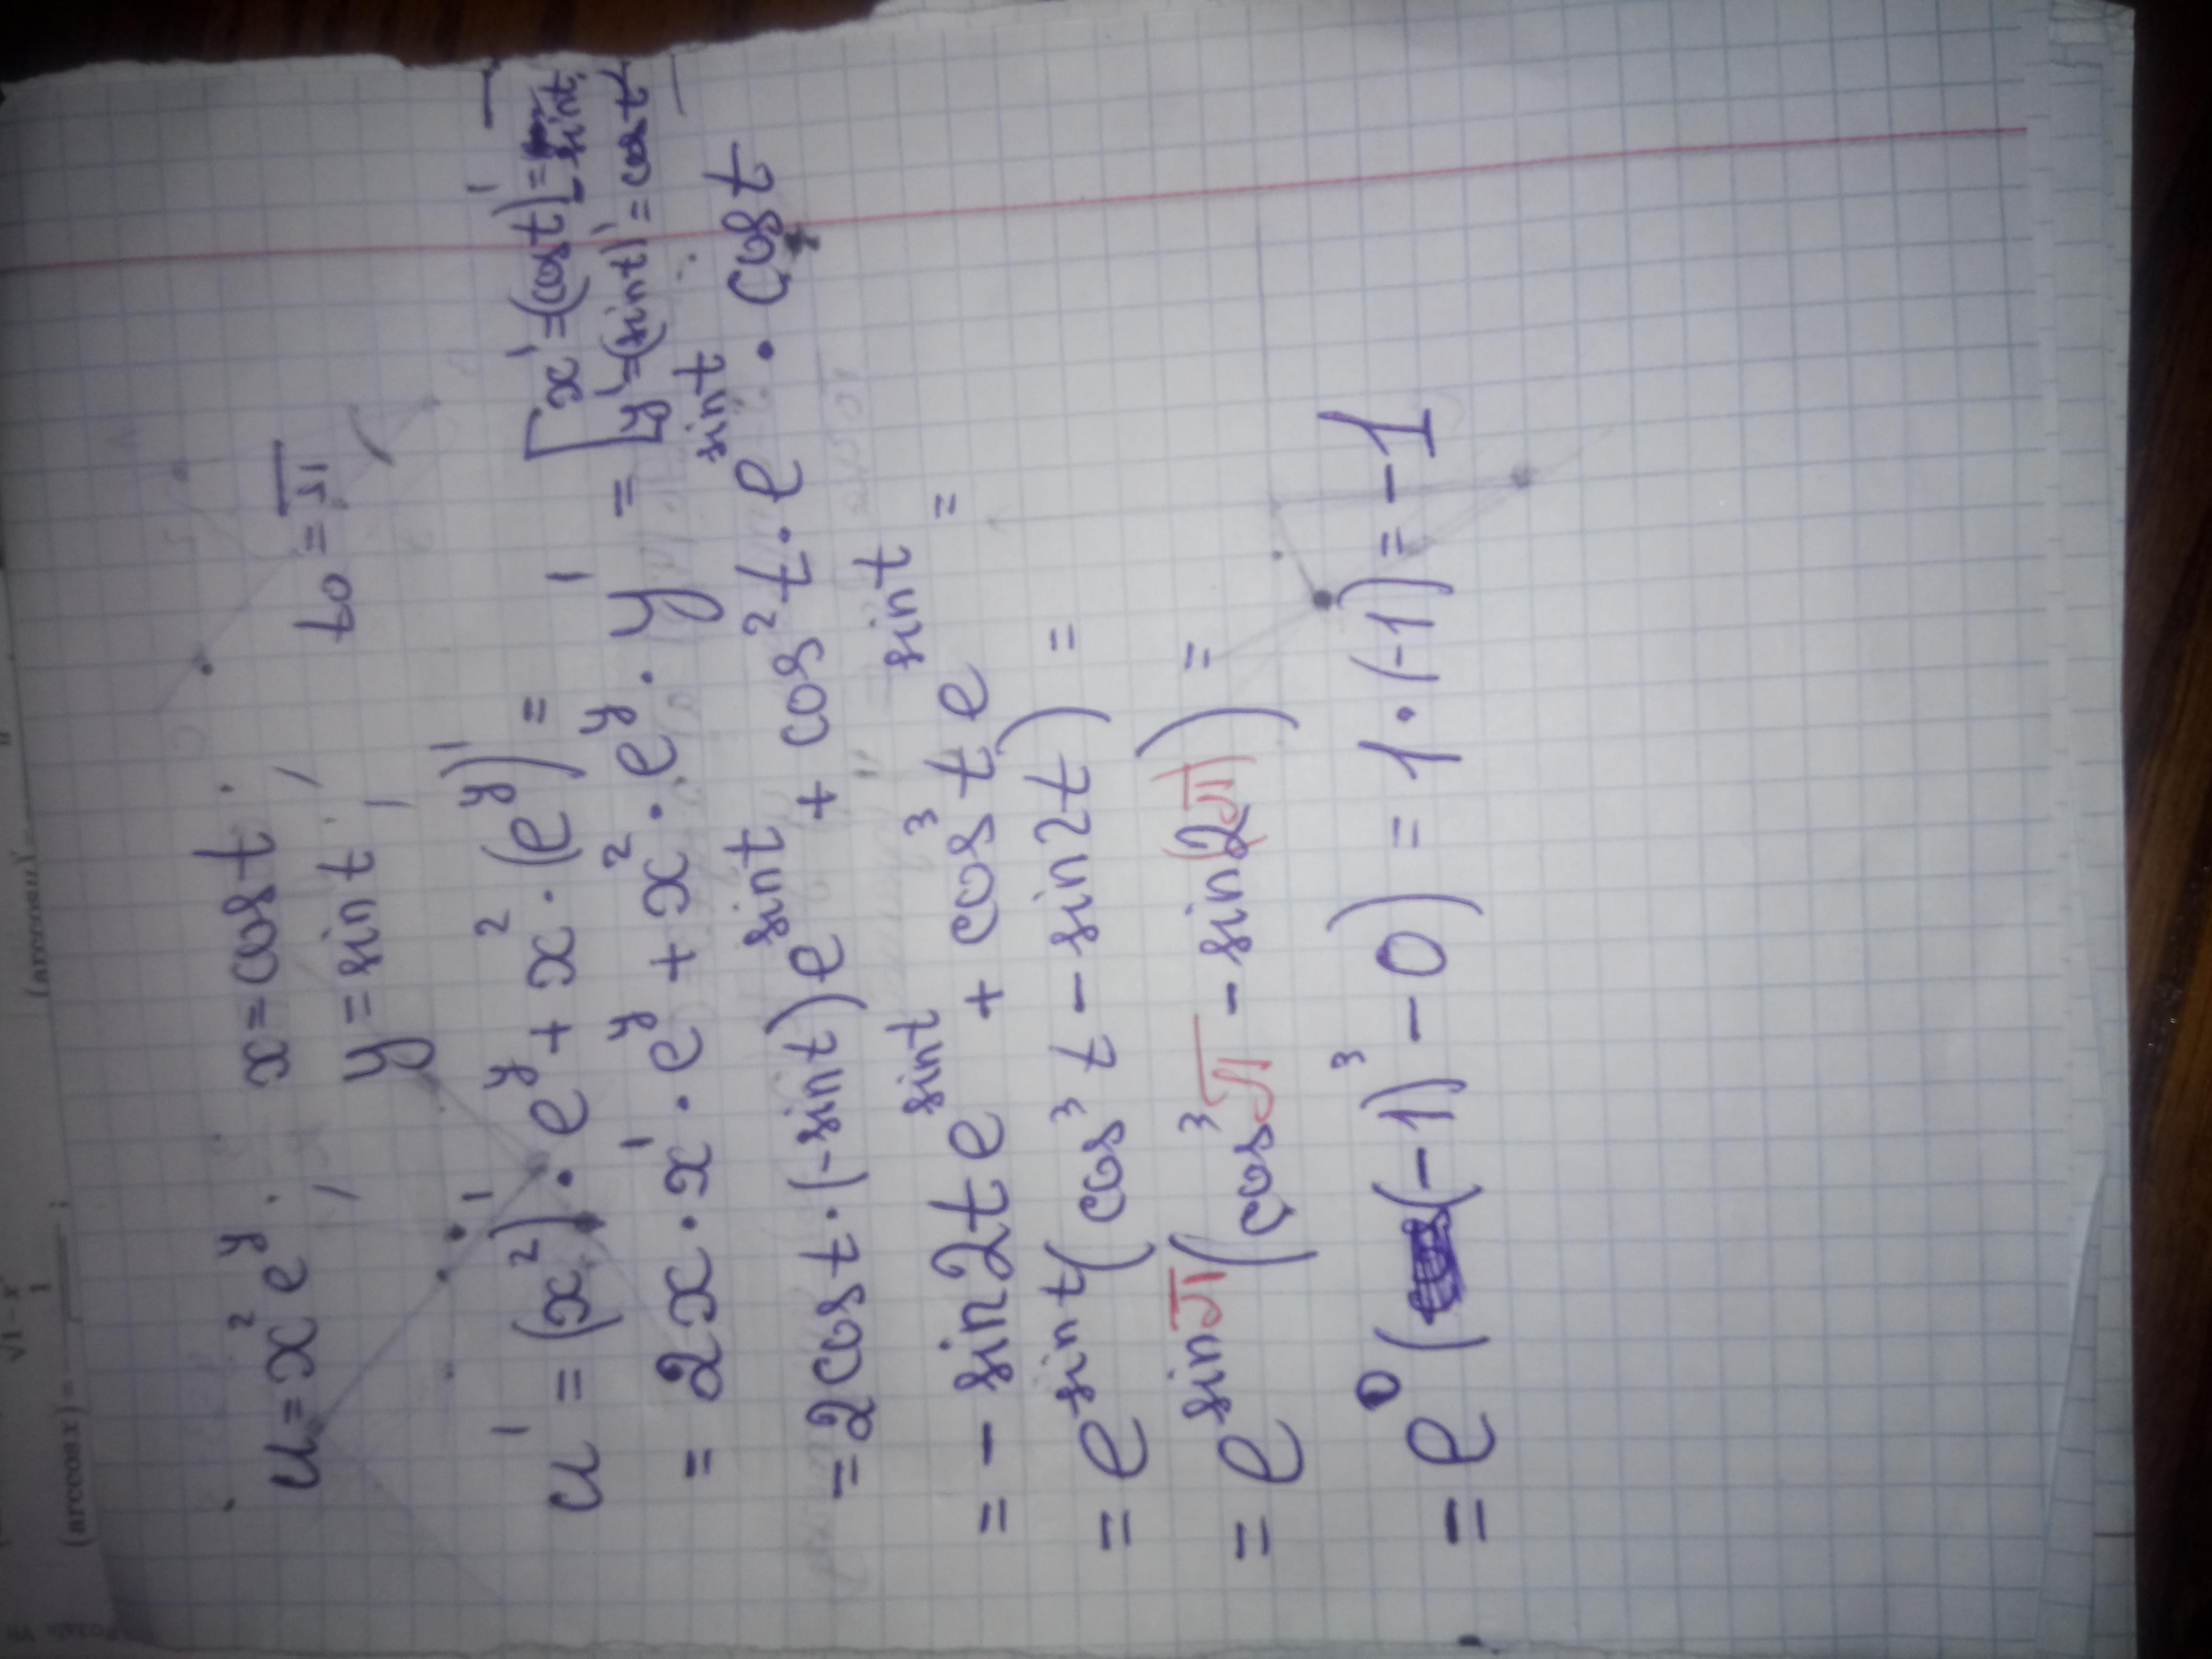 √1 - x²
(arccos x)' = - 1 ;
u = x² e^y ; x = cos t ;
y = sin t ; t₀ = π
u' = (x²)' · e^y + x² · (e^y)' =
= 2x · x' · e^y + x² · e^y · y' = [x' = (cos t)' = - sin t
y' = (sin t)' = cos t]
= 2cos t · (-sin t) e^sin t + cos² t · e^sin t · cos t
= - sin 2t e^sin t + cos³ t e^sin t =
= e^sin t (cos³ t - sin 2t) =
= e^sin π (cos³ π - sin 2(π)) =
= e^0 ((-1)³ - 0) = 1 · (-1) = -1